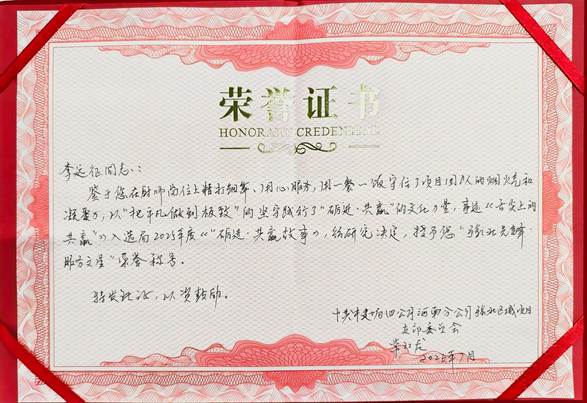 荣誉证书
HONORARY CREDENTIAL
李远征同志：
鉴于您在厨师岗位上精打细算、用心服务，用一餐一饭守住了项目团队的烟火气和
凝聚力，以“把平凡做到极致”的坚守践行了“砺进·共赢”的文化，事迹《舌尖上的
共赢》入选局2025年度《“砺进·共赢故事》，经研究决定，授予您“
服务之星”荣誉称号。
特发此证，以资鼓励。
四公司河南分公司 区域项目
支部委员会
2025年7月